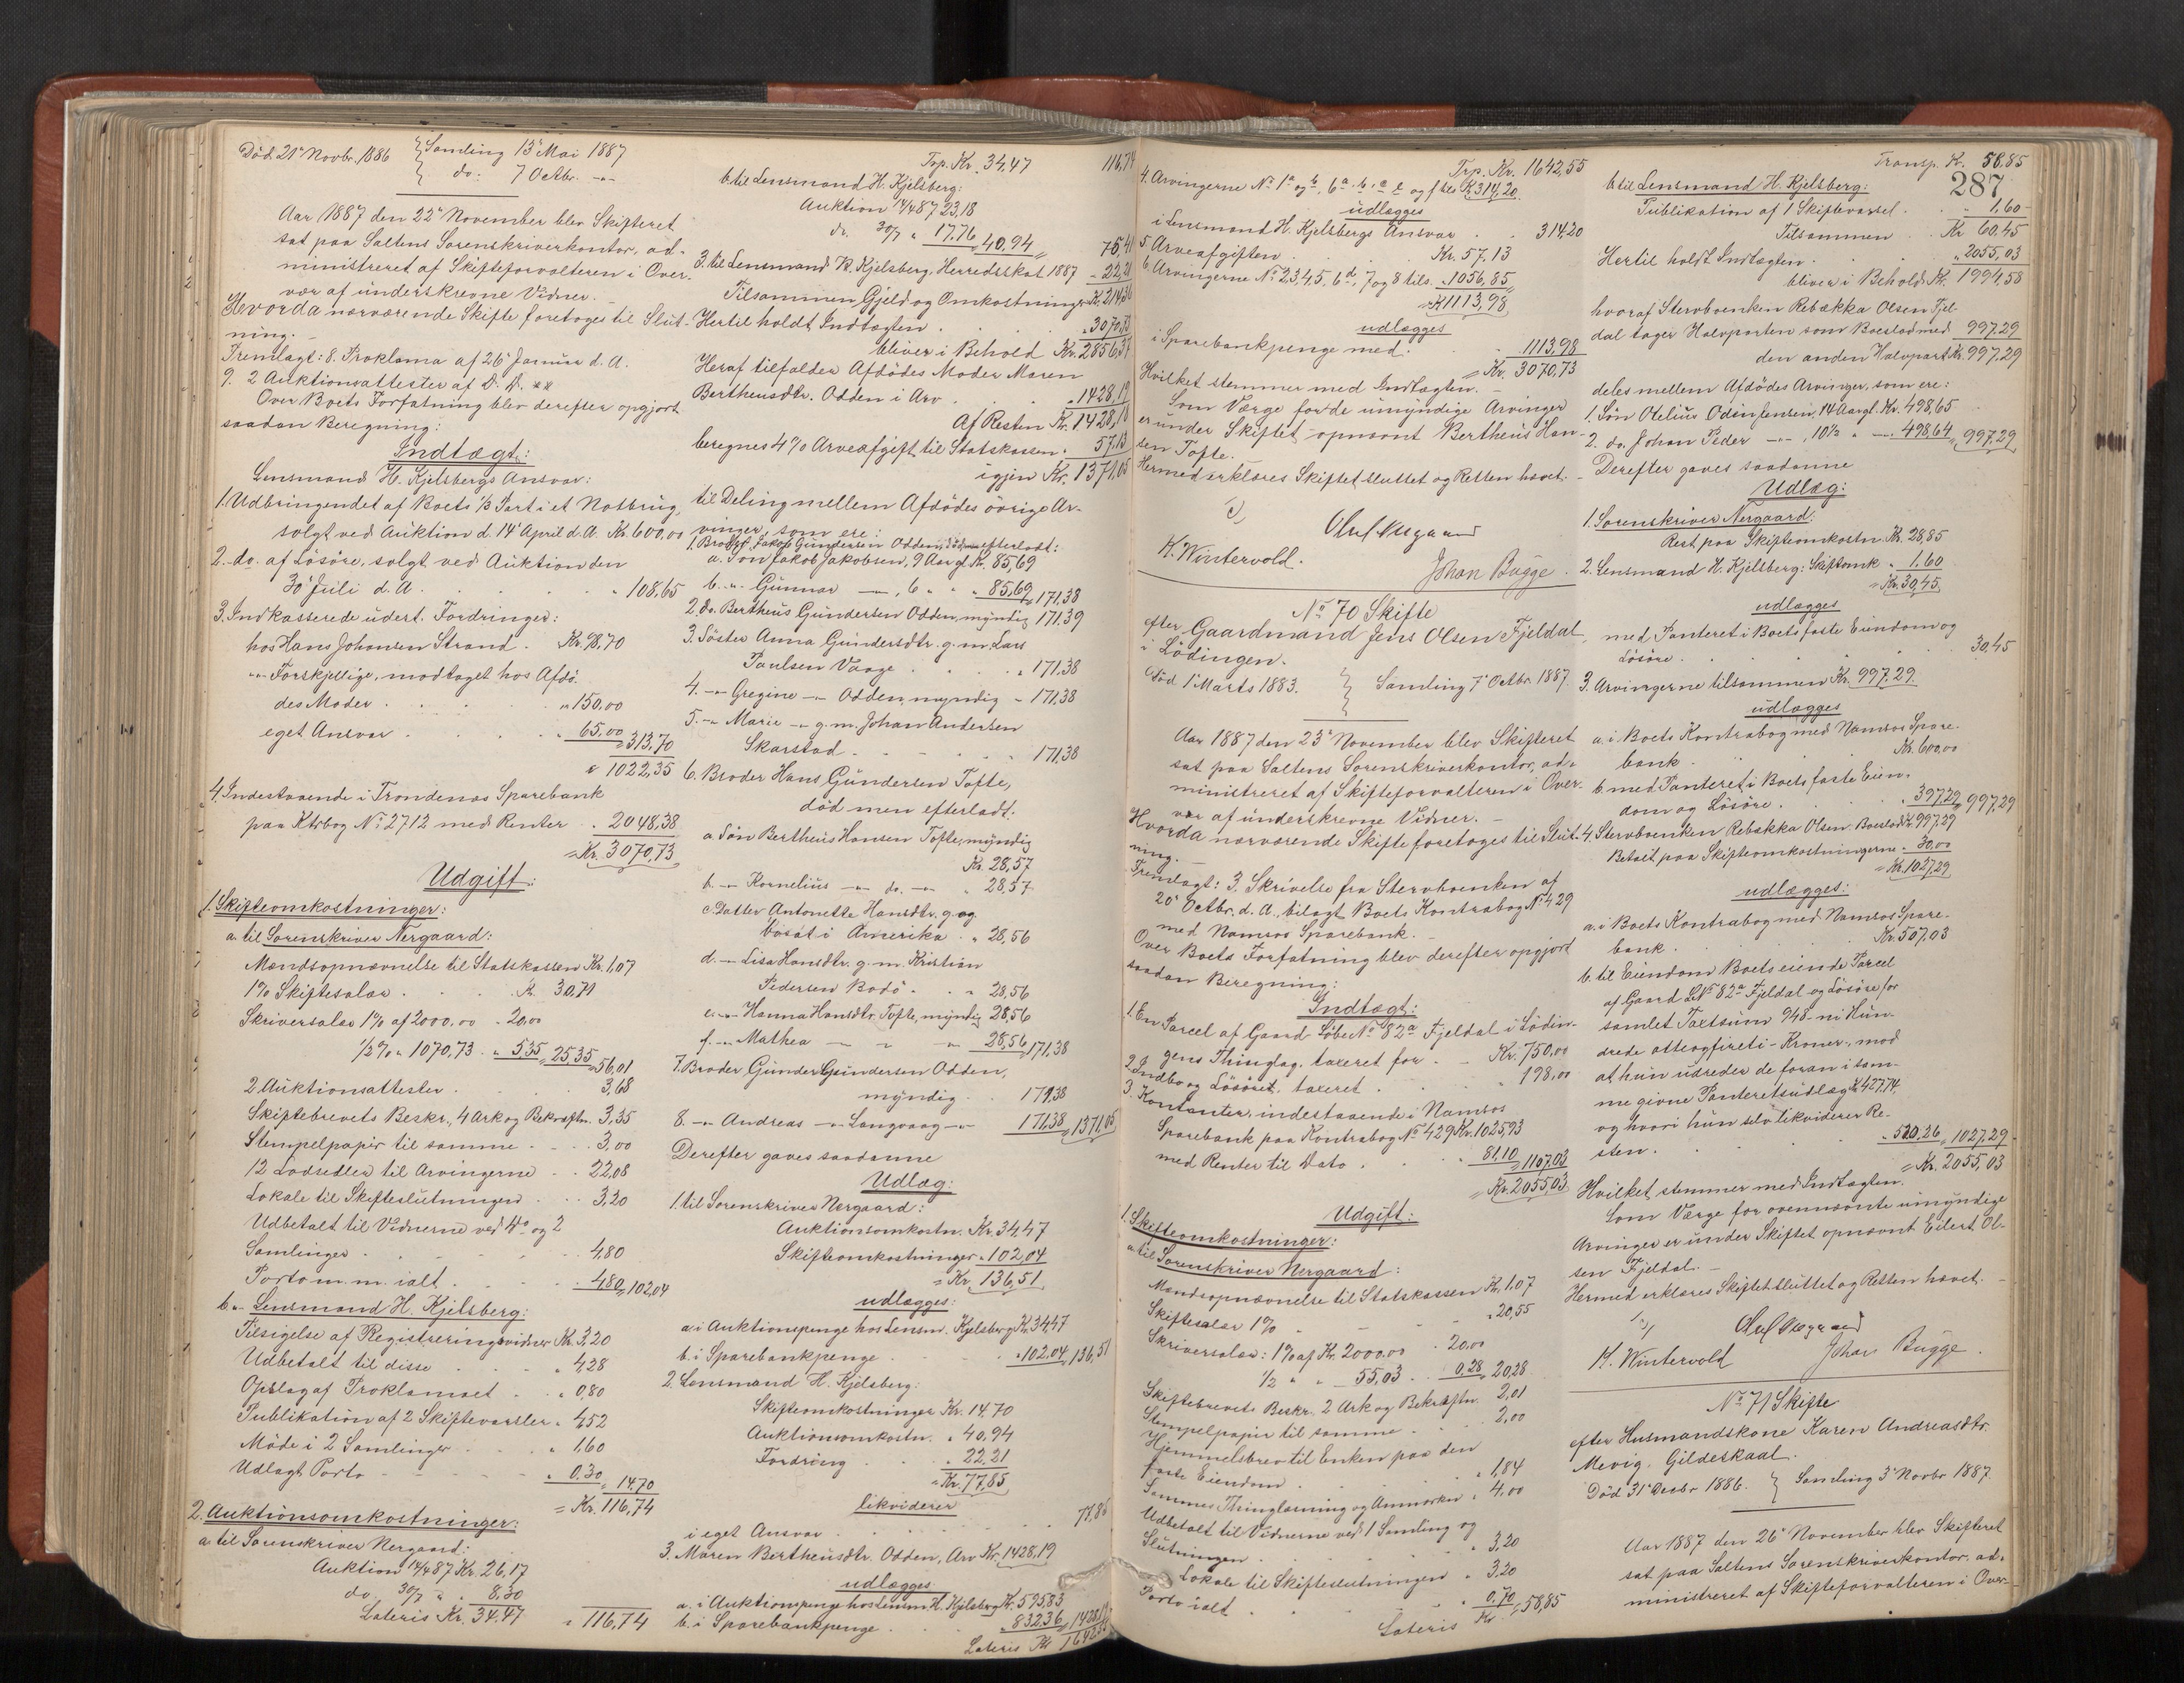 Död 21' Novbr. 1886 } Samling 13' Mai 1887
} do: 7 Octbr. -"-
Aar 1887 den 22' November blev Skifteret
sat paa Saltens Sorenskriverkontor, ad-
ministreret af Skifteforvalteren i Over-
vær af underskrevne Vidner. -
Hvorda nærværende Skifte foretoges til Slut-
ning. -
Fremlagt: 8. Proklama af 26' Januar d. A.
9. 2 Auktionsattester af D. D.
Over Boets Forfatning blev derefter opgjort
saadan Beregning:
Indtægt:
Lensmand H. Kjelsbergs Ansvar:
1. Udbringendet af Boets 1/3 Part i et Notbrug,
solgt ved Auktion d. 14' April d. A. Kr. 600,00
2. do. af Lösöre, solgt ved Auktion den
30' Juli d. A. . . " 108,65
3. Indkasserede udest. Fordringer:
hos Hans Johansen Strand . Kr. 98,70
"-" Forskjellige, modtaget hos Afdö-
des Moder . . . " 150,00
eget Ansvar . . . " 65,00 = 313,70
" 1022,35
4. Indestaaende i Trondenæs Sparebank
paa Ktrbog No 2712 med Renter . . 2048,38
= Kr. 3070,73
Udgift:
1. Skifteomkostninger:
a. til Sorenskriver Nergaard:
Mandsopnævnelse til Statskassen Kr. 1,07
1% Skiftesalær . . . Kr. 30,71
Skriversalær 1% af 2000,00 . 20,00
1/2% " 1070,73 . " 5,35 = 25,35 = 56,01
2 Auktionsattester . . . 3,68
Skiftebrevets Beskr., 4 Ark og Bekræftn. 3,35
Stempelpapir til samme . . . 3,00
12 Lodsedler til Arvingerne . . 22,08
Lokale til Skifteslutningen . . . 3,20
Udbetalt til Vidnerne ved og 2
Samlinger . . . 4,80
Porto m. m. ialt . . . 4,80 = 102,04
b. "- Lensmand H. Kjelsberg:
Tilsigelse af Registreringsvidner Kr. 3,20
Udbetalt til disse . . . " 4,28
Opslag af Proklamaet . . " 0,80
Publikation af 2 Skiftevarsler " 4,52
Möde i 2 Samlinger . . " 1,60
Udlagt Porto - - - " 0,30 = 14,70
= Kr. 116,74
2. Auktionsomkostninger:
a. til Sorenskriver Nergaard:
Auktion 14/4 87 Kr. 26,17
do. 30/7 " " 8,30
Lateris Kr. 34,47 " 116,74
Trp. Kr. 34,47 116,74
b. til Lensmand H. Kjelsberg:
Auktion 14/4 87 23,18
do. 30/7 " 17,76 = 40,94 = 75,41
3. til Lensmand H. Kjelsberg, Herredsskat 1887 - 22,21
Tilsammen Gjeld og Omkostninger Kr. 214,36
Hertil holdt Indtægten . . . " 3070,73
bliver i Behold Kr. 2856,37
Heraf tilfalder Afdödes Moder Maren
Bertheusdtr. Odden i Arv . . . " 1428,19
Af Resten Kr. 1428,18
beregnes 4% Arveafgift til Statskassen . 57,13
igjen Kr. 1371,05
til Deling mellem Afdödes övrige Ar-
vinger, som ere:
1. Broder Jakob Gundersen Odden, död men efterladt:
a. Sön Jakob Jakobsen, 9 Aar gl. Kr. 85,69
b. -"- Gunnar -"-, 6 " " " 85,69 = 171,38
2. do. Bertheus Gundersen Odden, myndig 171,39
3. Söster Anna Gundersdtr. g. m. Lars
Paulsen Vaage . . . " 171,38
4. -"- Gregine -"- Odden, myndig - 171,38
5. -"- Marie -"- g. m. Johan Andersen
Skarstad . - - - " 171,38
6. Broder Hans Gundersen Tofte,
död men efterladt:
a Sön Bertheus Hansen Tofte, myndig
Kr. 28,57
b. -"- Kornelius -"- do. -"- " 28,57
c. Datter Antonette Hansdtr. g. og
bosat i Amerika . " 28,56
d. -"- Lisa Hansdtr. g. m. Kristian
Pedersen Bodö . . " 28,56
e. -"- Hanna Hansdtr. Tofte, myndig 28,56
f. -"- Mathea -"- " -"- 28,56 = 171,38
7. Broder Gunder Gundersen Odden,
myndig . . 171,38
8. -"- Andreas -"- Langvaag -"- 171,38 = 1371,05
Derefter gaves saadanne
Udlæg:
1. til Sorenskriver Nergaard:
Auktionsomkostn. Kr. 34,47
Skifteomkostninger " 102,04
= Kr. 136,51
udlægges:
a. i Auktionspenge hos Lensm. Kjelsberg Kr. 34,47
b. i Sparebankpenge . . . " 102,04 = 136,51
2. Lensmand H. Kjelsberg:
Skifteomkostninger Kr. 14,70
Auktionsomkostn. " 40,94
Fordring . . " 22,21
= Kr. 77,85
likviderer
i eget Ansvar . . . 77,85
3. Maren Bertheusdtr. Odden, Arv Kr. 1428,19
udlægges
a. i Auktionspenge hos Lensm. H. Kjelsberg Kr. 595,83
b. i Sparebankpenge . . . " 832,36 = 1428,19
Lateris Kr. 1642,55
Trp. Kr. 1642,55
4. Arvingerne No 1a og b, 6a, b, c, e og f tils. Kr. 314,20
udlægges
i Lensmand H. Kjelsbergs Ansvar . . 314,20
5. Arveafgiften . . . Kr. 57,13
6. Arvingerne No 2,3,4,5, 6d, 7 og 8 tils. " 1056,85
= Kr. 1113,98
udlægges
i Sparebankpenge med . . . 1113,98
= Kr. 3070,73
Hvilket stemmer med Indtægten. -
Som Værge for de umyndige Arvinger
er under Skiftet opnævnt Bertheus Han-
sen Tofte.
Hermed erklæres Skiftet sluttet og Retten hævet. -
Oluf Nergaard
K. Wintervold.
Johan Bugge.
No 70 Skifte
efter Gaardmand Jens Olsen Fjeldal
i Lödingen.
Död 1' Marts 1883. } Samling 7' Octbr. 1887.
Aar 1887 den 23' November blev Skifteret
sat paa Saltens Sorenskriverkontor, ad-
ministreret af Skifteforvalteren i Over-
vær af underskrevne Vidner. -
Hvorda nærværende Skifte foretoges til Slut-
ning. -
Fremlagt: 3. Skrivelse fra Stervboenken af
20' Octbr. d. A., bilagt Boets Kontrabog No 429
med Namsos Sparebank. -
Over Boets Forfatning blev derefter opgjort
saadan Beregning:
Indtægt:
1. En Parcel af Gaard Löbe No 82a Fjeldal i Lödin-
gens Thinglag, taxeret for . - Kr. 750,00
2. Indbo og Lösöret, taxeret . . " 198,00
3. Kontanter, indestaaende i Namsos
Sparebank paa Kontrabog No 429 Kr. 1025,93
med Renter til Dato . . . " 81,10 = 1107,03
= Kr. 2055,03
Udgift:
1. Skifteomkostninger:
a. til Sorenskriver Nergaard:
Mandsopnævnelse til Statskassen Kr. 1,07
Skiftesalær 1% . . . " 20,55
Skriversalær: 1% af Kr. 2000,00 . 20,00
1/2 " " - 55,03 . . 0,28 = 20,28
Skiftebrevets Beskr. 2 Ark og Bekræftn. 2,01
Stempelpapir til samme . . 2,00
Hjemmelsbrev til Enken paa den
faste Eiendom . . . " 1,84
Sammes Thinglæsning og Anmærkn. " 4,00
Udbetalt til Vidnerne ved 1 Samling og
Slutningen . . . " 3,20
Lokale til Skifteslutningen " 3,20
Porto ialt . . . " 0,70 = 58,85
Lateris Kr.
Transp. Kr. 58,85
287
b. til Lensmand H. Kjelsberg:
Publikation af 1 Skiftevarsel . . " 1,60
Tilsammen . Kr. 60,45
Hertil holdt Indtægten . . " 2055,03
bliver i Behold Kr. 1994,58
hvoraf Stervboenken Rebækka Olsen Fjel-
dal tager Halvparten som Boeslod med 997,29
den anden Halvpart Kr. 997,29
deles mellem Afdödes Arvinger, som ere:
1. Sön Otelius Odin Jensen, 14 Aar gl. Kr. 498,65
2. do. Johan Peder -"-, 10 1/2 " -"- 498,64 = 997,29
Derefter gaves saadanne
Udlæg:
1. Sorenskriver Nergaard:
Rest paa Skifteomkostn. Kr. 28,85
2. Lensmand H. Kjelsberg: Skiftomk. " 1,60
= Kr. 30,45
udlægges
med Panteret i Boets faste Eiendom og
Lösöre . . . 30,45
3. Arvingerne tilsammen Kr. 997,29
udlægges
a. i Boets Kontrabog med Namsos Spare-
bank . . . Kr. 600,00
b. med Panteret i Boets faste Eien-
dom og Lösöre . . . " 397,29 = 997,29
4. Stervboenken Rebekka Olsen: Boeslod Kr. 997,29
Betalt paa Skifteomkostningerne " 30,00
= Kr. 1027,29
udlægges:
a. i Boets Kontrabog med Namsos Spare-
bank . . . Kr. 507,03
b. til Eiendom Boets eiende Parcel
af Gaard L. No 82a Fjeldal og Lösöre for
samlet Taxtsum 948 - ni Hun-
drede otteogfireti - Kroner, mod
at hun udreder de foran i sam-
me givne Panteretsudlæg Kr. 427,74,
og hvori hun selv likviderer Re-
sten . . . " 520,26 = 1027,29
= Kr. 2055,03
Hvilket stemmer med Indtægten.
Som Værge for ovennævnte umyndige
Arvinger er under Skiftet opnævnt Eilert Ol-
sen Fjeldal. -
Hermed erklæres Skiftet sluttet og Retten hævet. -
Oluf Nergaard
K. Wintervold
Johan Bugge.
No 71 Skifte
efter Husmandskone Karen Andreasdtr.
Mevig, Gildeskaal.
Död 31' Decbr. 1886. } Samling 3' Novbr. 1887.
Aar 1887 den 26' November blev Skifteret
sat paa Saltens Sorenskriverkontor, ad-
ministreret af Skifteforvalteren i Over-